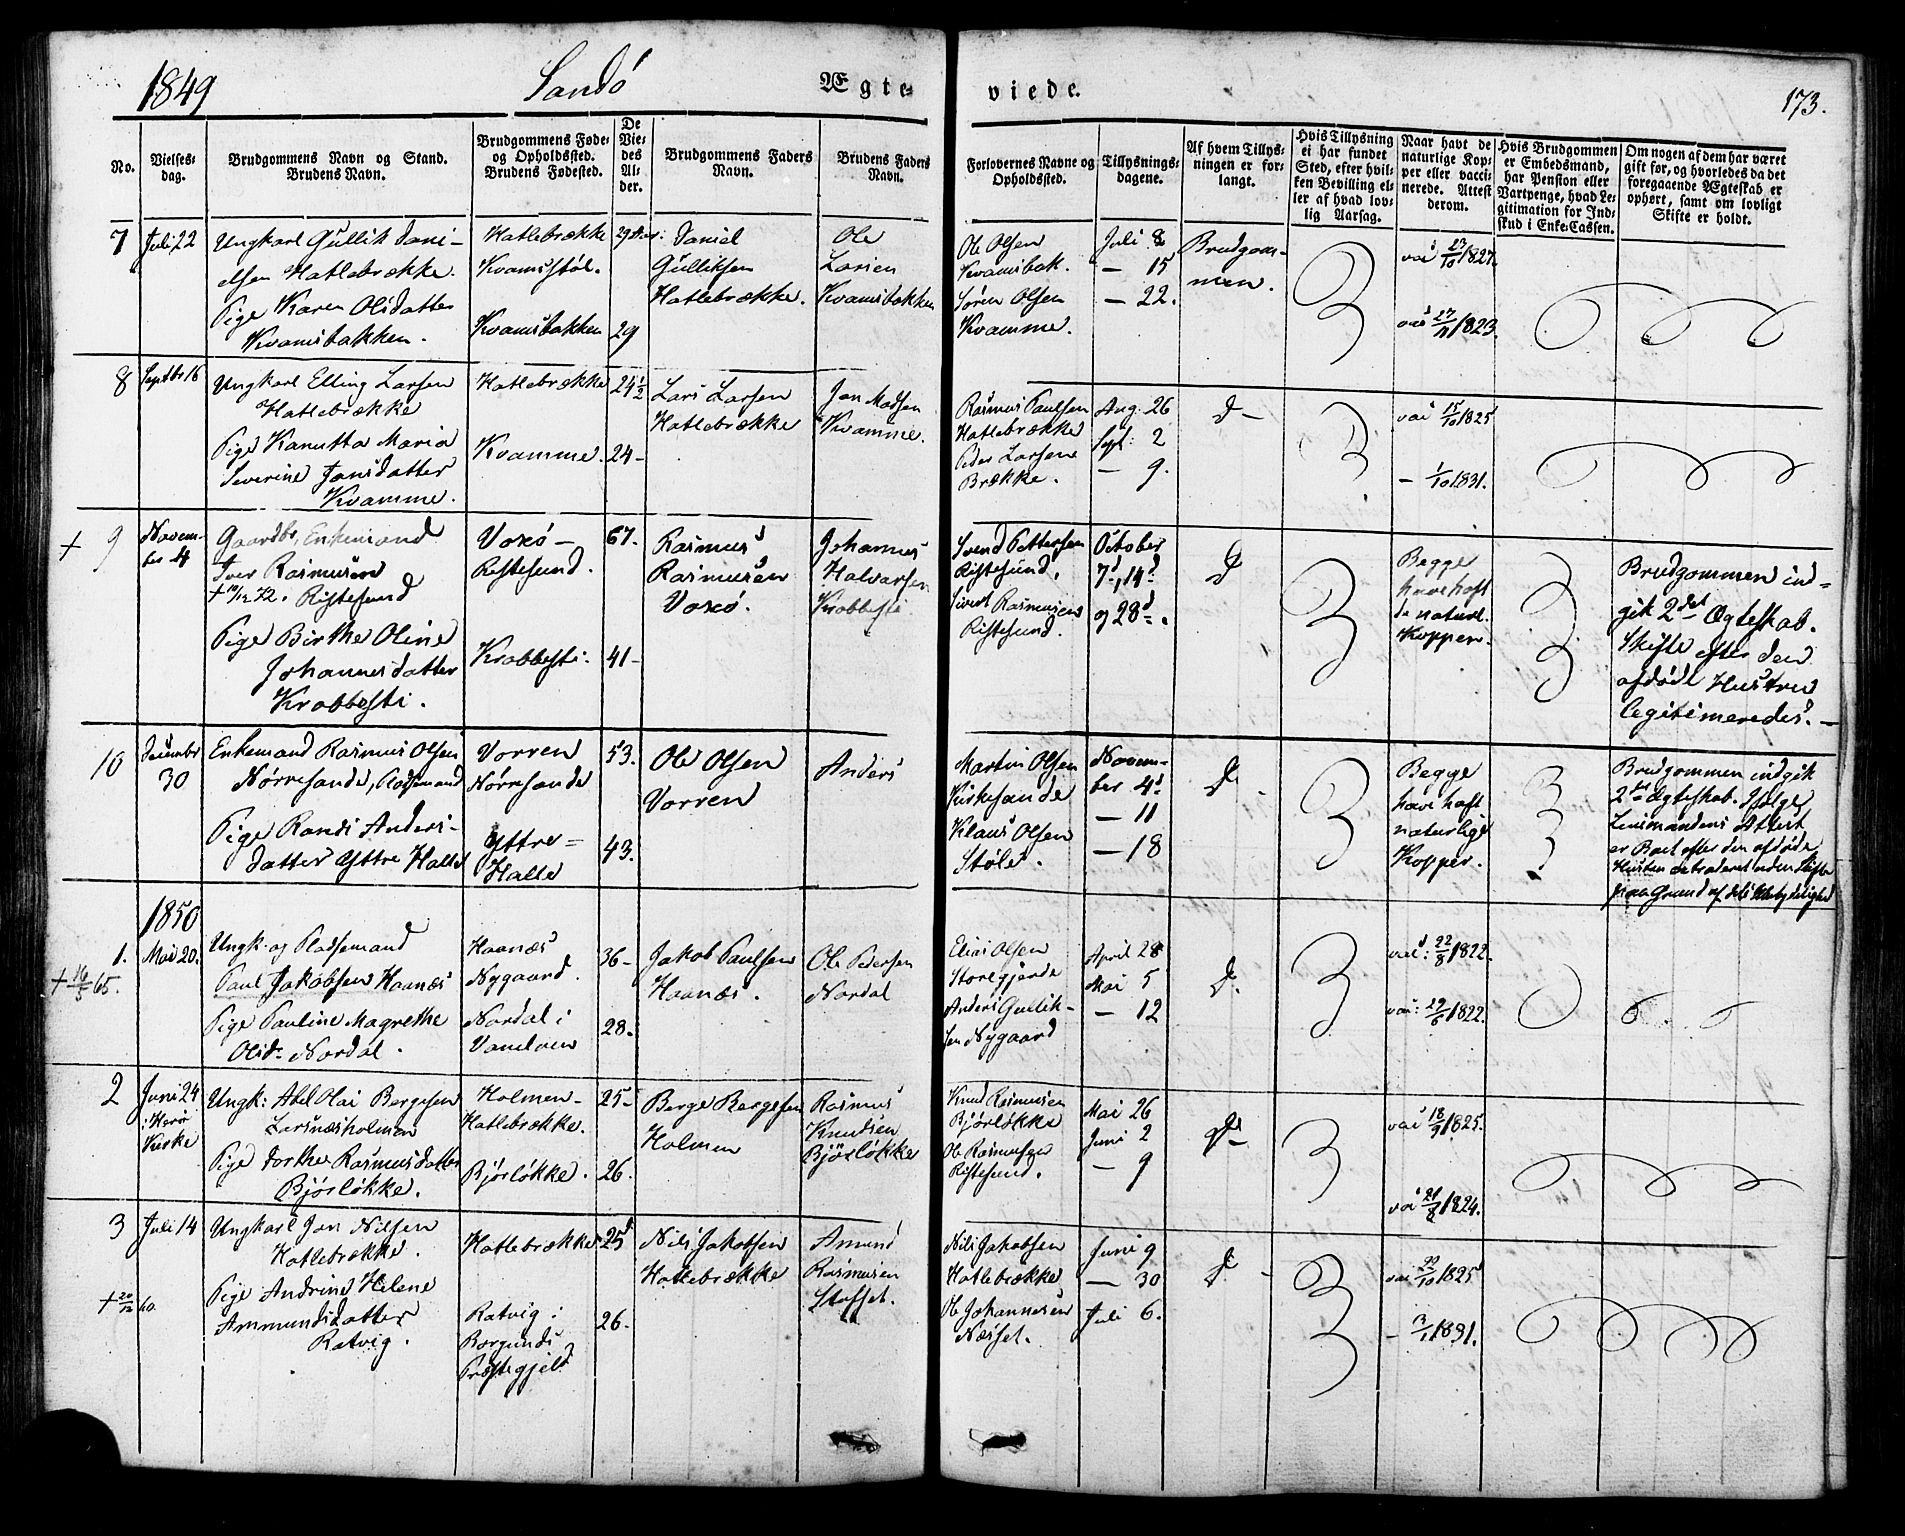 1849
Sandö
Ægte
viede.
173.
No.
Vielses-
dag.
Brudgommens Navn og Stand.
Brudens Navn.
Brudgommens Føde-
og Opholdssted.
Brudens Fødested.
De
Vie-
des
Al-
der.
Brudgommens Faders
Navn.
Brudens Faders
Navn.
Forlovernes Navne og
Opholdssted.
Tillysnings-
dagene.
Af hvem Tillys-
ningen er for-
langt.
Hvis Tillysning
ei har fundet
Sted, efter hvil-
ken Bevilling el-
ler af hvad lov-
lig Aarsag.
Naar havt de
naturlige Kop-
per eller vacci-
nerede. Attest
derom.
Hvis Brudgommen
er Embedsmand,
har Pension eller
Vartpenge, hvad Le-
gitimation for Ind-
skud i Enke-Cassen.
Om nogen af dem har været
gift før, og hvorledes da det
foregaaende Ægteskab er
ophørt, samt om lovligt
Skifte er holdt.
7
Juli 22
Ungkarl Gullik Dani-
elsen Hatlebrække.
Pige Karen Olsdatter
Kvamsbakken.
Hatlebrække
Kvamsstøl.
Kvamsbakken
29
29
Daniel
Gulliksen
Hatlebrække.
Ole
Larsen
Kvamsbakken
Ole Olsen
Kvamsbak.
Søren Olsen
Kvamme.
Juli 8
— 15
— 22.
Brudgom-
men.
vac 23/10 1827.
vac 27/11 1823.
8
Septbr 16
Ungkarl Elling Larsen
Hatlebrække
Pige Kanutta Maria
Severine Jonsdatter
Kvamme.
Hatlebrække
Kvamme.
24½
24-
Lars Larsen
Hatlebrække
Jon Madsen
Kvamme.
Rasmus Paulsen
Hatlebrække
Peder Larsen
Brække.
Aug. 26
Sept: 2
— 9.
D—
vac 15/10 1825
— 1/10 1831.
+ 9
Novem-
ber 4
Gaardbr, Enkemand
Iver Rasmusen
+ 10/12 72. Ristesund
Pige Birthe Oline
Johannesdatter
Krabbesti.
Voxö —
Ristesund.
Krabbesti.
67.
41-
Rasmus
Rasmusen
Voxö.
Johannes
Halvorsen
Krabbesti
Svend Pettersen
Ristesund,
Sivert Rasmusens
Ristesund.
October
7d, 14d
og 28d.
D
Begge
have haft
de naturl.
Kopper.
Brudgommen ind-
gik 2det Ægteskab.
Skifte efter den
afdøde Hustru
legitimeredes. —
10
December
30
Enkemand Rasmus Olsen
Nørresande, Pladsemand
Pige Randi Anders-
datter Yttre Halle
Vorren
Nørresande
Yttre=
Halle
53.
43.
Ole Olsen
Vorren
Anders
Martin Olsen
Kirkesande
Klaus Olsen
Støle.
Novem-
ber 4d
— 11
— 18
D.
Begge
have haft
naturlige
Kopper.
Brudgommen indgik
2det Ægteskab. Ifølge
Lensmandens Attest
er Boet efter den afdøde
Hustru extraderet uden Skifte
paa Grund af dets Ubetydelighed
1850
1.
+ 16/5 65.
Mai 20.
Ungk. og Pladsemand
Paul Jakobsen Haanæs
Pige Pauline Magrethe
Olsd. Nordal.
Haanæs
Nygaard.
Nordal i
Vanelven
36-
28.
Jakob Paulsen
Haanæs.
Ole Pedersen
Nordal
Elias Olsen
Storegjerde
Anders Gullik-
sen Nygaard
April 28
Mai 5
— 12
D.
vac: 22/8 1822.
vac: 29/6 1822.
2
Juni 24
i Herö
Kirke
Ungk: Abel Olai Bergesen
Larsnæsholmen
Pige Dorthe Rasmusdatter
Bjørløkke.
Holmen-
Hatlebrække.
Bjørløkke.
25-
26.
Berge Bergesen
Holmen
Rasmus
Knudsen
Bjørløkke
Knud Rasmusen
Bjørløkke
Ole Rasmusen
Ristesund.
Mai 26
Juni 2
— 9
D—
vac 18/9 1825.
vac 21/8 1824.
3
+ 20/12 60.
Juli 14
Ungkarl Jon Nilsen
Hatlebrække.
Pige Andrine Helene
Ammundsdatter
Ratvig.
Hatlebrække
Ratvig i
Borgunds
Præstegjeld
25
26.
Nils Jakobsen
Hatlebrække
Amund
Rasmusen
Nils Jakobsen
Hatlebrække
Ole Johannesen
Næsset.
Juni 9
— 30
Juli 6.
D.
vac 22/10 1825
— 3/1 1831.